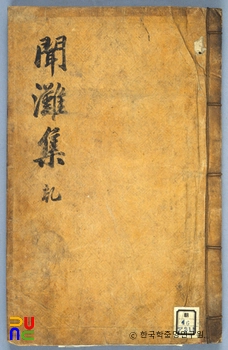 聞灘集
乹
© 한국학중앙연구원